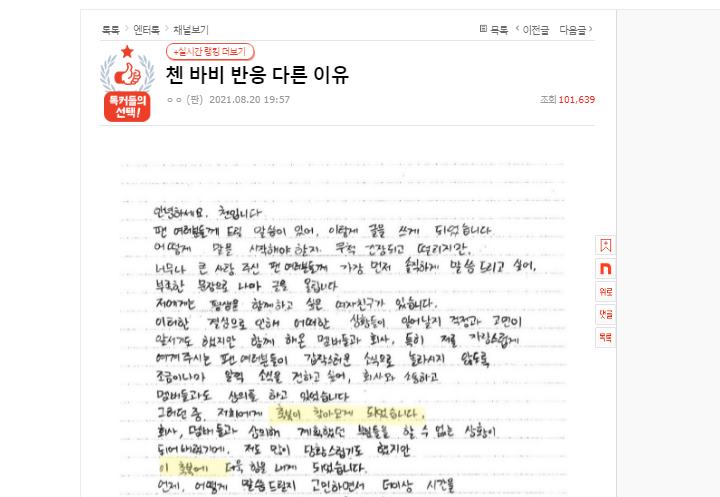 톡톡 > 엔터톡 > 채널보기
목록 < 이전글 다음글 >
+실시간 랭킹 더보기
톡커들의
선택!
첸 바비 반응 다른 이유
ㅇㅇ (판) 2021.08.20 19:57
조회 101,639
안녕하세요. 첸입니다
팬 여러분들께 드릴 말씀이 있어, 이렇게 글을 쓰게 되었습니다.
어떻게 말을 시작해야 할지 무척 긴장되고 떨리지만,
너무나 큰 사랑 주신 팬 여러분들께 가장 먼저 솔직하게 말씀드리고 싶어,
부족한 문장으로 나마 글을 올립니다
저에게는 평생을 함께하고 싶은 여자친구가 있습니다.
이러한 결심으로 인해 어떠한 상황들이 일어날지 걱정과 고민이
앞서기도 했지만 함께 해온 멤버들과 회사, 특히 저를 자랑스럽게
여겨주시는 팬 여러분들이 갑작스러운 소식으로 놀라시지 않도록
조금이나마 일찍 소식을 전하고 싶어, 회사와 소통하고
멤버들과도 상의를 하고 있었습니다
그러던 중, 저희에게 축복이 찾아오게 되었습니다.
회사, 멤버들과 상의해 계획했던 부분들을 할 수 없는 상황이
되어버렸기에, 저도 많이 당황스럽기도 했지만
이 축복에 더욱 힘을 내게 되었습니다.
언제, 어떻게 말씀 드릴지 고민하면서 더이상 시간을
위로
댓글
목록